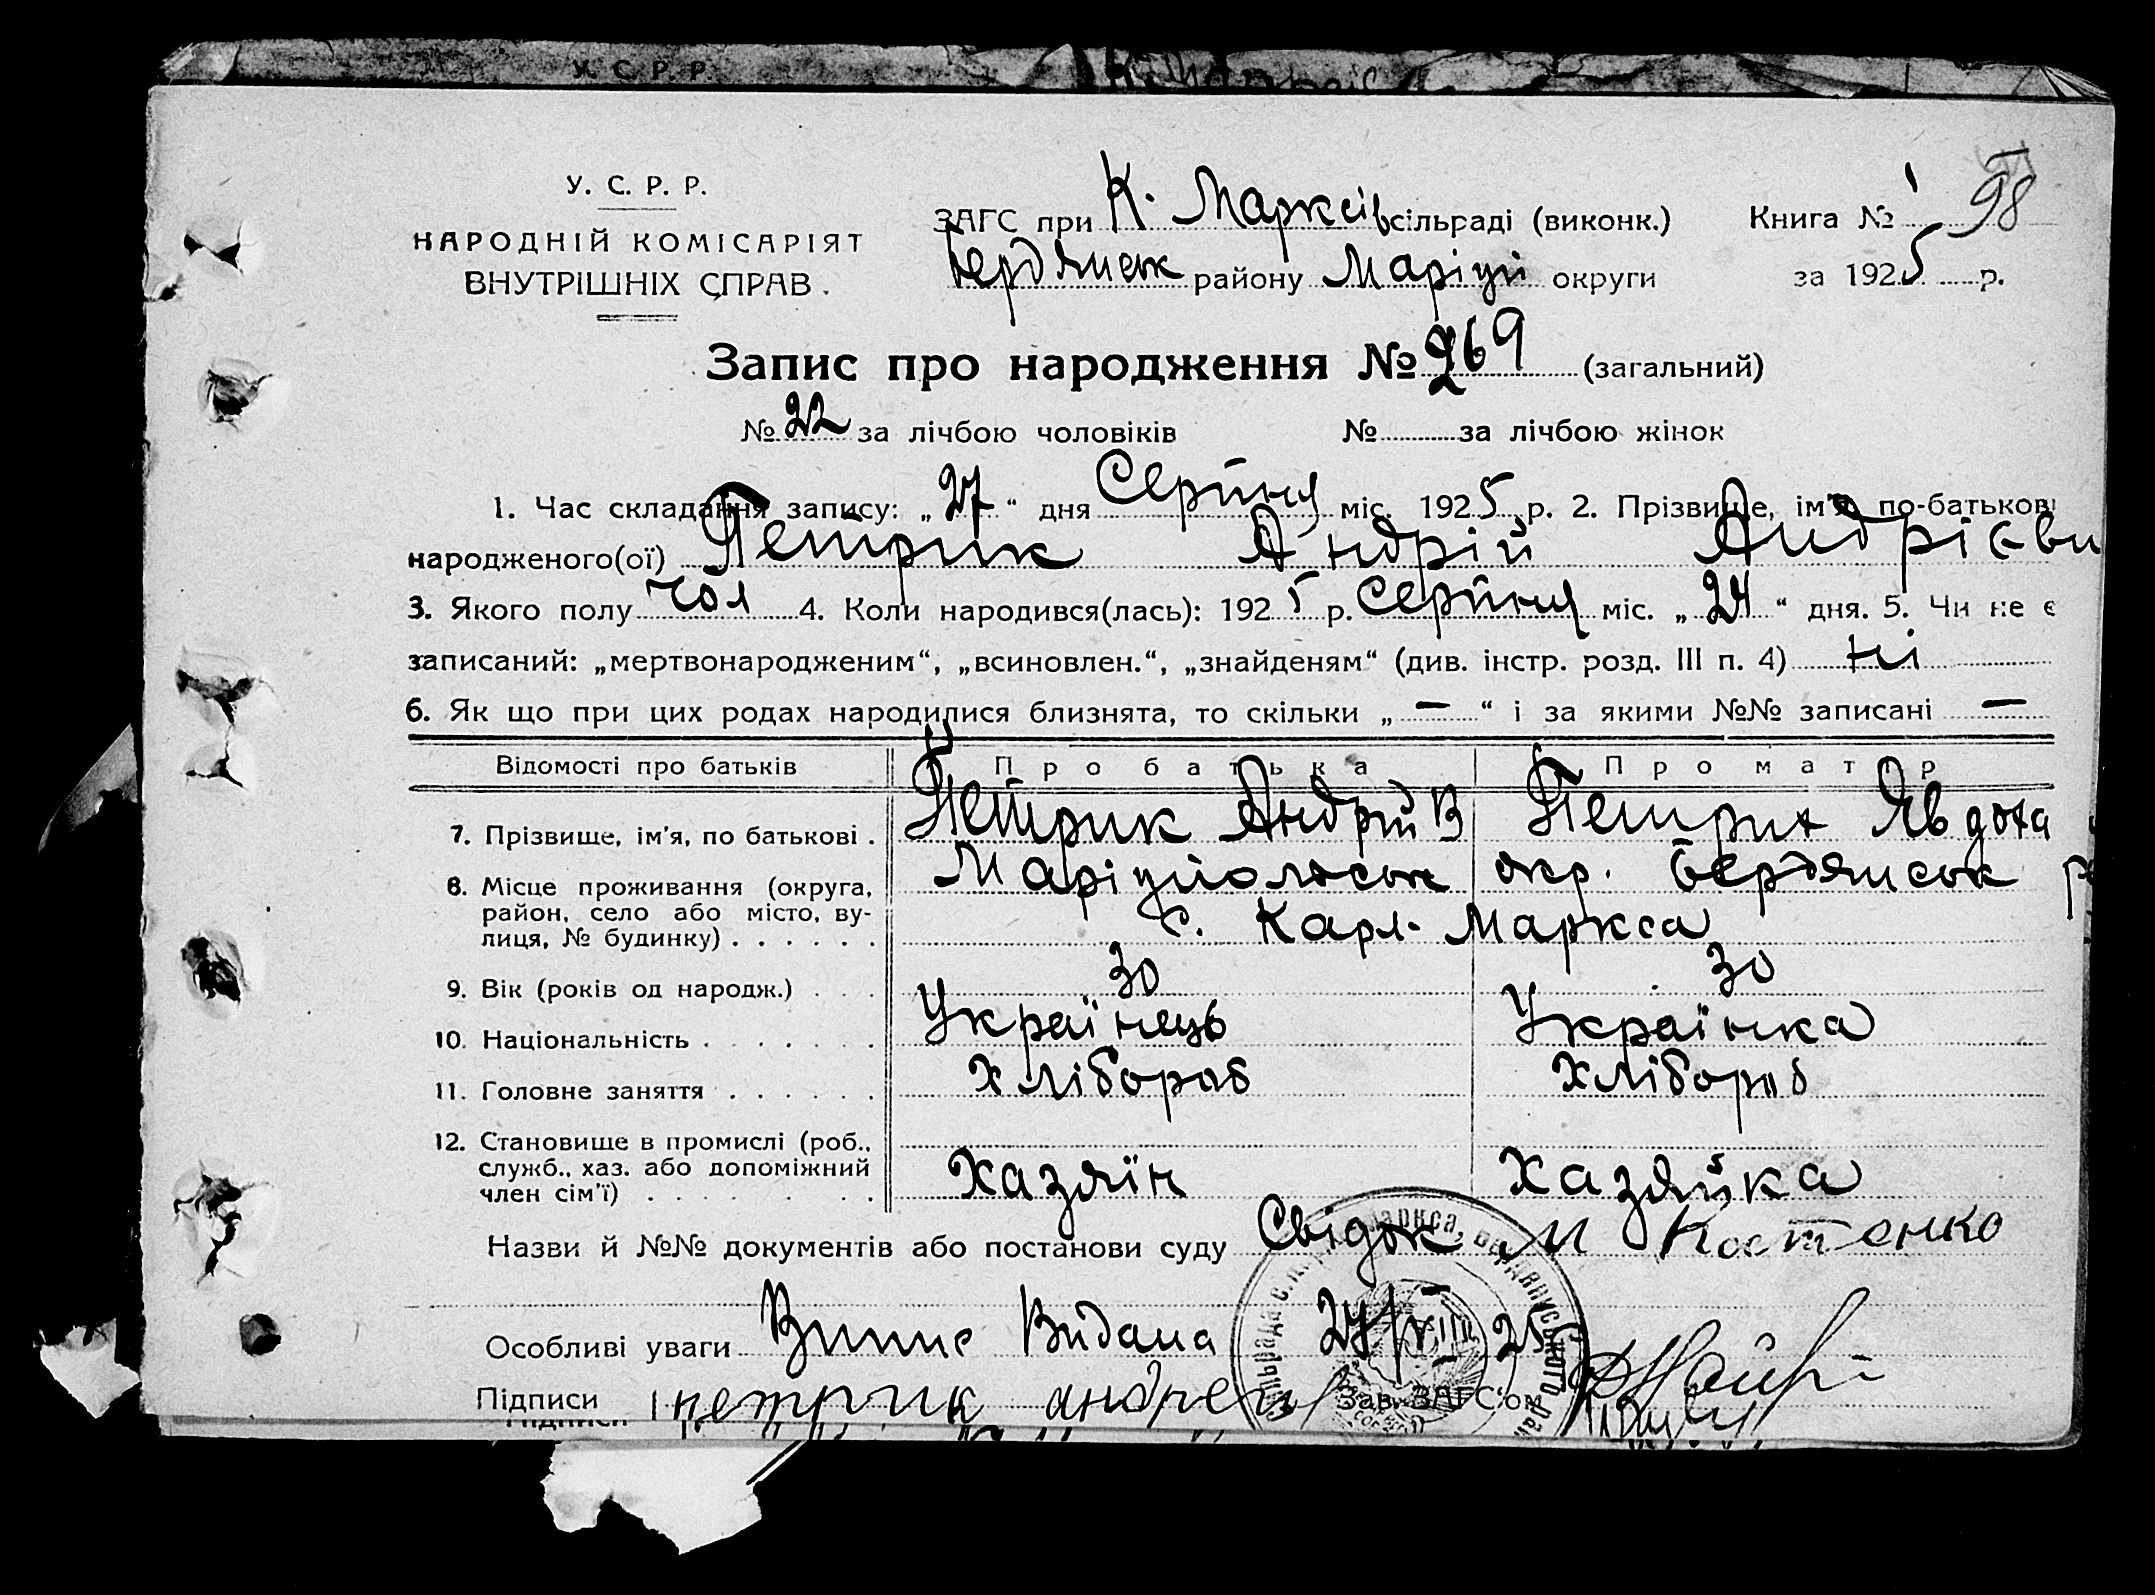 У. С. Р. Р.
У. С. Р. Р.
НАРОДНІЙ КОМІСАРІЯТ
ВНУТРІШНІХ СПРАВ.
ЗАГС при К. Марксів сільраді (виконк.) Книга № 1 98
Бердянськ району Маріуп округи за 1925 р.
Запис про народження № 269 (загальний)
№ 22 за лічбою чоловіків № за лічбою жінок
1. Час складання запису: „27“ дня Серпня міс. 1925 р. 2. Прізвище, ім'я, по-батькові
народженого(ої) Петрик Андрій Андрієви
3. Якого полу чол 4. Коли народився(лась): 1925 р. Серпня міс. „24“ дня. 5. Чи не є
записаний: „мертвонародженим“, „всиновлен.“, „знайденям“ (див. інстр. розд. III п. 4) ні
6. Як що при цих родах народилися близнята, то скільки „—“ і за якими №№ записані —
Відомості про батьків Про батька Про матір
7. Прізвище, ім'я, по батькові . Петрик Андрій В Петрик Явдоха
8. Місце проживання (округа, Маріупольськ окр. Бердянськ р
район, село або місто, ву- с. Карл. Маркса
лиця, № будинку) . . . . . .
9. Вік (років од народж.) . . . 30 30
10. Національність . . . . . . . Українець Українка
11. Головне заняття . . . . . . Хлібороб Хлібороб
12. Становище в промислі (роб.,
служб., хаз. або допоміжний Хазяїн Хазяйка
член сім'ї) . . . . . . . .
Назви й №№ документів або постанови суду Свідок М Костенко
Особливі уваги Випис Видана 27/VIII 25
Підписи петрик андрей Зав. ЗАГС'ом
Підписи